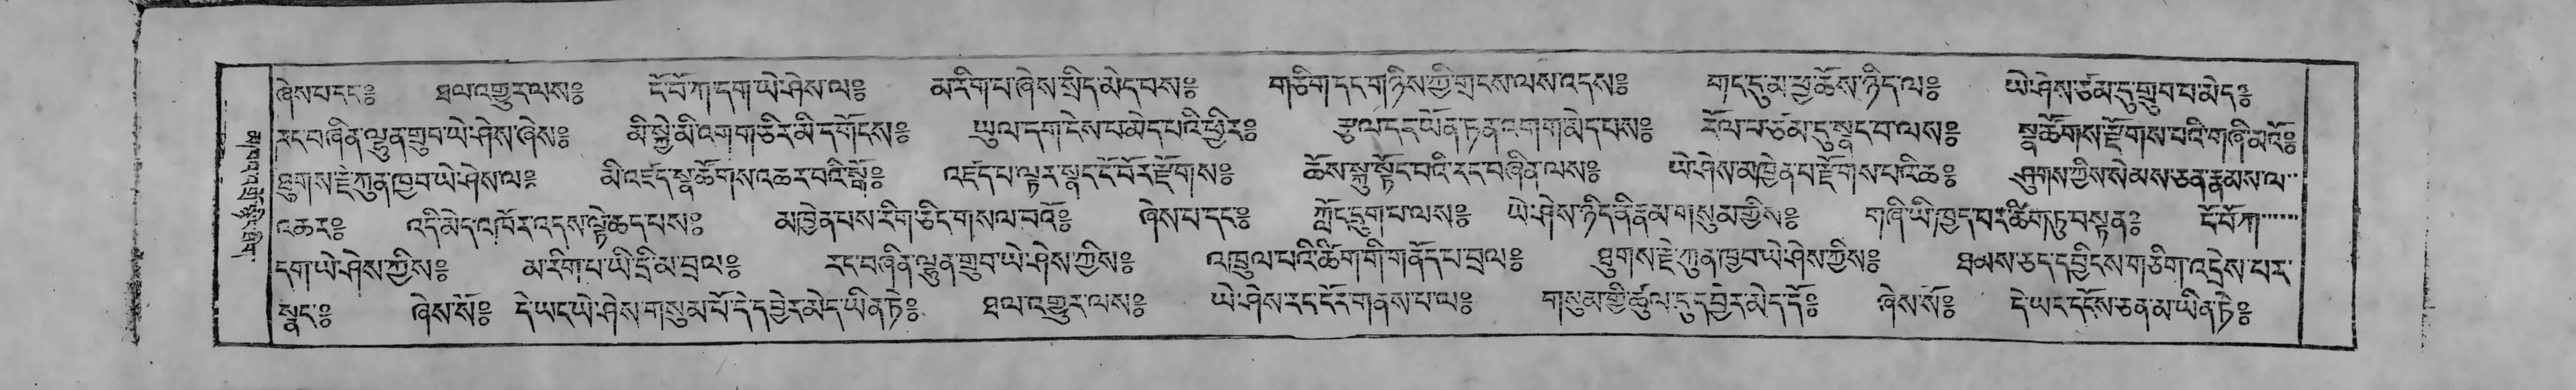 ཞེས་པ་དང༔ ཐལ་འགྱུར་ལས༔ ངོ་བོ་ཀ་དག་ཡེ་ཤེས་ལ༔ མ་རིག་པ་ཞེས་སྲིད་མེད་པས༔ གཅིག་དང་གཉིས་ཀྱི་གྲངས་ལས་འདས༔ གང་དུ་མ་ཕྱྭ་ཆོས་ཉིད་ལ༔ ཡེ་ཤེས་ཙམ་དུ་གྲུབ་པ་མེད༔
རང་བཞིན་ལྷུན་གྲུབ་ཡེ་ཤེས་ཞེས༔ མི་སྐྱེ་མི་འགག་ཅིར་མི་དགོངས༔ ཡུལ་དག་ངེས་པ་མེད་པའི་ཕྱིར༔ རྩལ་དང་ཡོན་ཏན་འགག་མེད་པས༔ རོལ་པ་ཙམ་དུ་སྣང་བ་ལས༔ སྣ་ཚོགས་རྫོགས་པའི་གཞི་མའོ༔
ཐུགས་རྗེ་ཀུན་ཁྱབ་ཡེ་ཤེས་ལ༔ མི་འཛད་སྣ་ཚོགས་འཆར་བའི་སྒོ༔ འཛད་པ་ལྟར་སྣང་ངོ་བོར་རྫོགས༔ ཆོས་སྐུ་སྟོང་པའི་རང་བཞིན་ལས༔ ཡེ་ཤེས་མཁྱེན་པ་རྫོགས་པའི་ཆ༔ ཐུགས་ཀྱིས་སེམས་ཅན་རྣམས་ལ་
འཆར༔ འདི་མེད་འཁོར་འདས་ལྟེ་ཆད་པས༔ མཁྱེན་པས་རིག་ཅིང་གསལ་བའོ༔ ཞེས་པ་དང༔ ཀློང་དྲུག་པ་ལས༔ ཡེ་ཤེས་ཉིད་ནི་རྣམ་གསུམ་གྱིས༔ གཞི་ཡི་ཁྱད་པར་ཚིག་ཏུ་བསྟན༔ ངོ་བོ་ཀ་
དག་ཡེ་ཤེས་ཀྱིས༔ མ་རིག་པ་ཡི་དྲི་མ་བྲལ༔ རང་བཞིན་ལྷུན་གྲུབ་ཡེ་ཤེས་ཀྱིས༔ འཁྲུལ་པའི་ཚིག་གི་གནོད་པ་བྲལ༔ ཐུགས་རྗེ་ཀུན་ཁྱབ་ཡེ་ཤེས་ཀྱིས༔ ཐམས་ཅད་དབྱིངས་གཅིག་འདྲེས་པར་
སྣང༔ ཞེས་སོ༔ དེ་ཡང་ཡེ་ཤེས་གསུམ་པོ་དེ་དབྱེར་མེད་ཡིན་ཏེ༔ ཐལ་འགྱུར་ལས༔ ཡེ་ཤེས་རང་ངོར་གནས་པ་ལ༔ གསུམ་གྱི་ཚུལ་དུ་དབྱེར་མེད་དོ༔ ཞེས་སོ༔ དེ་ཡང་དངོས་ཅན་མ་ཡིན་ཏེ༔